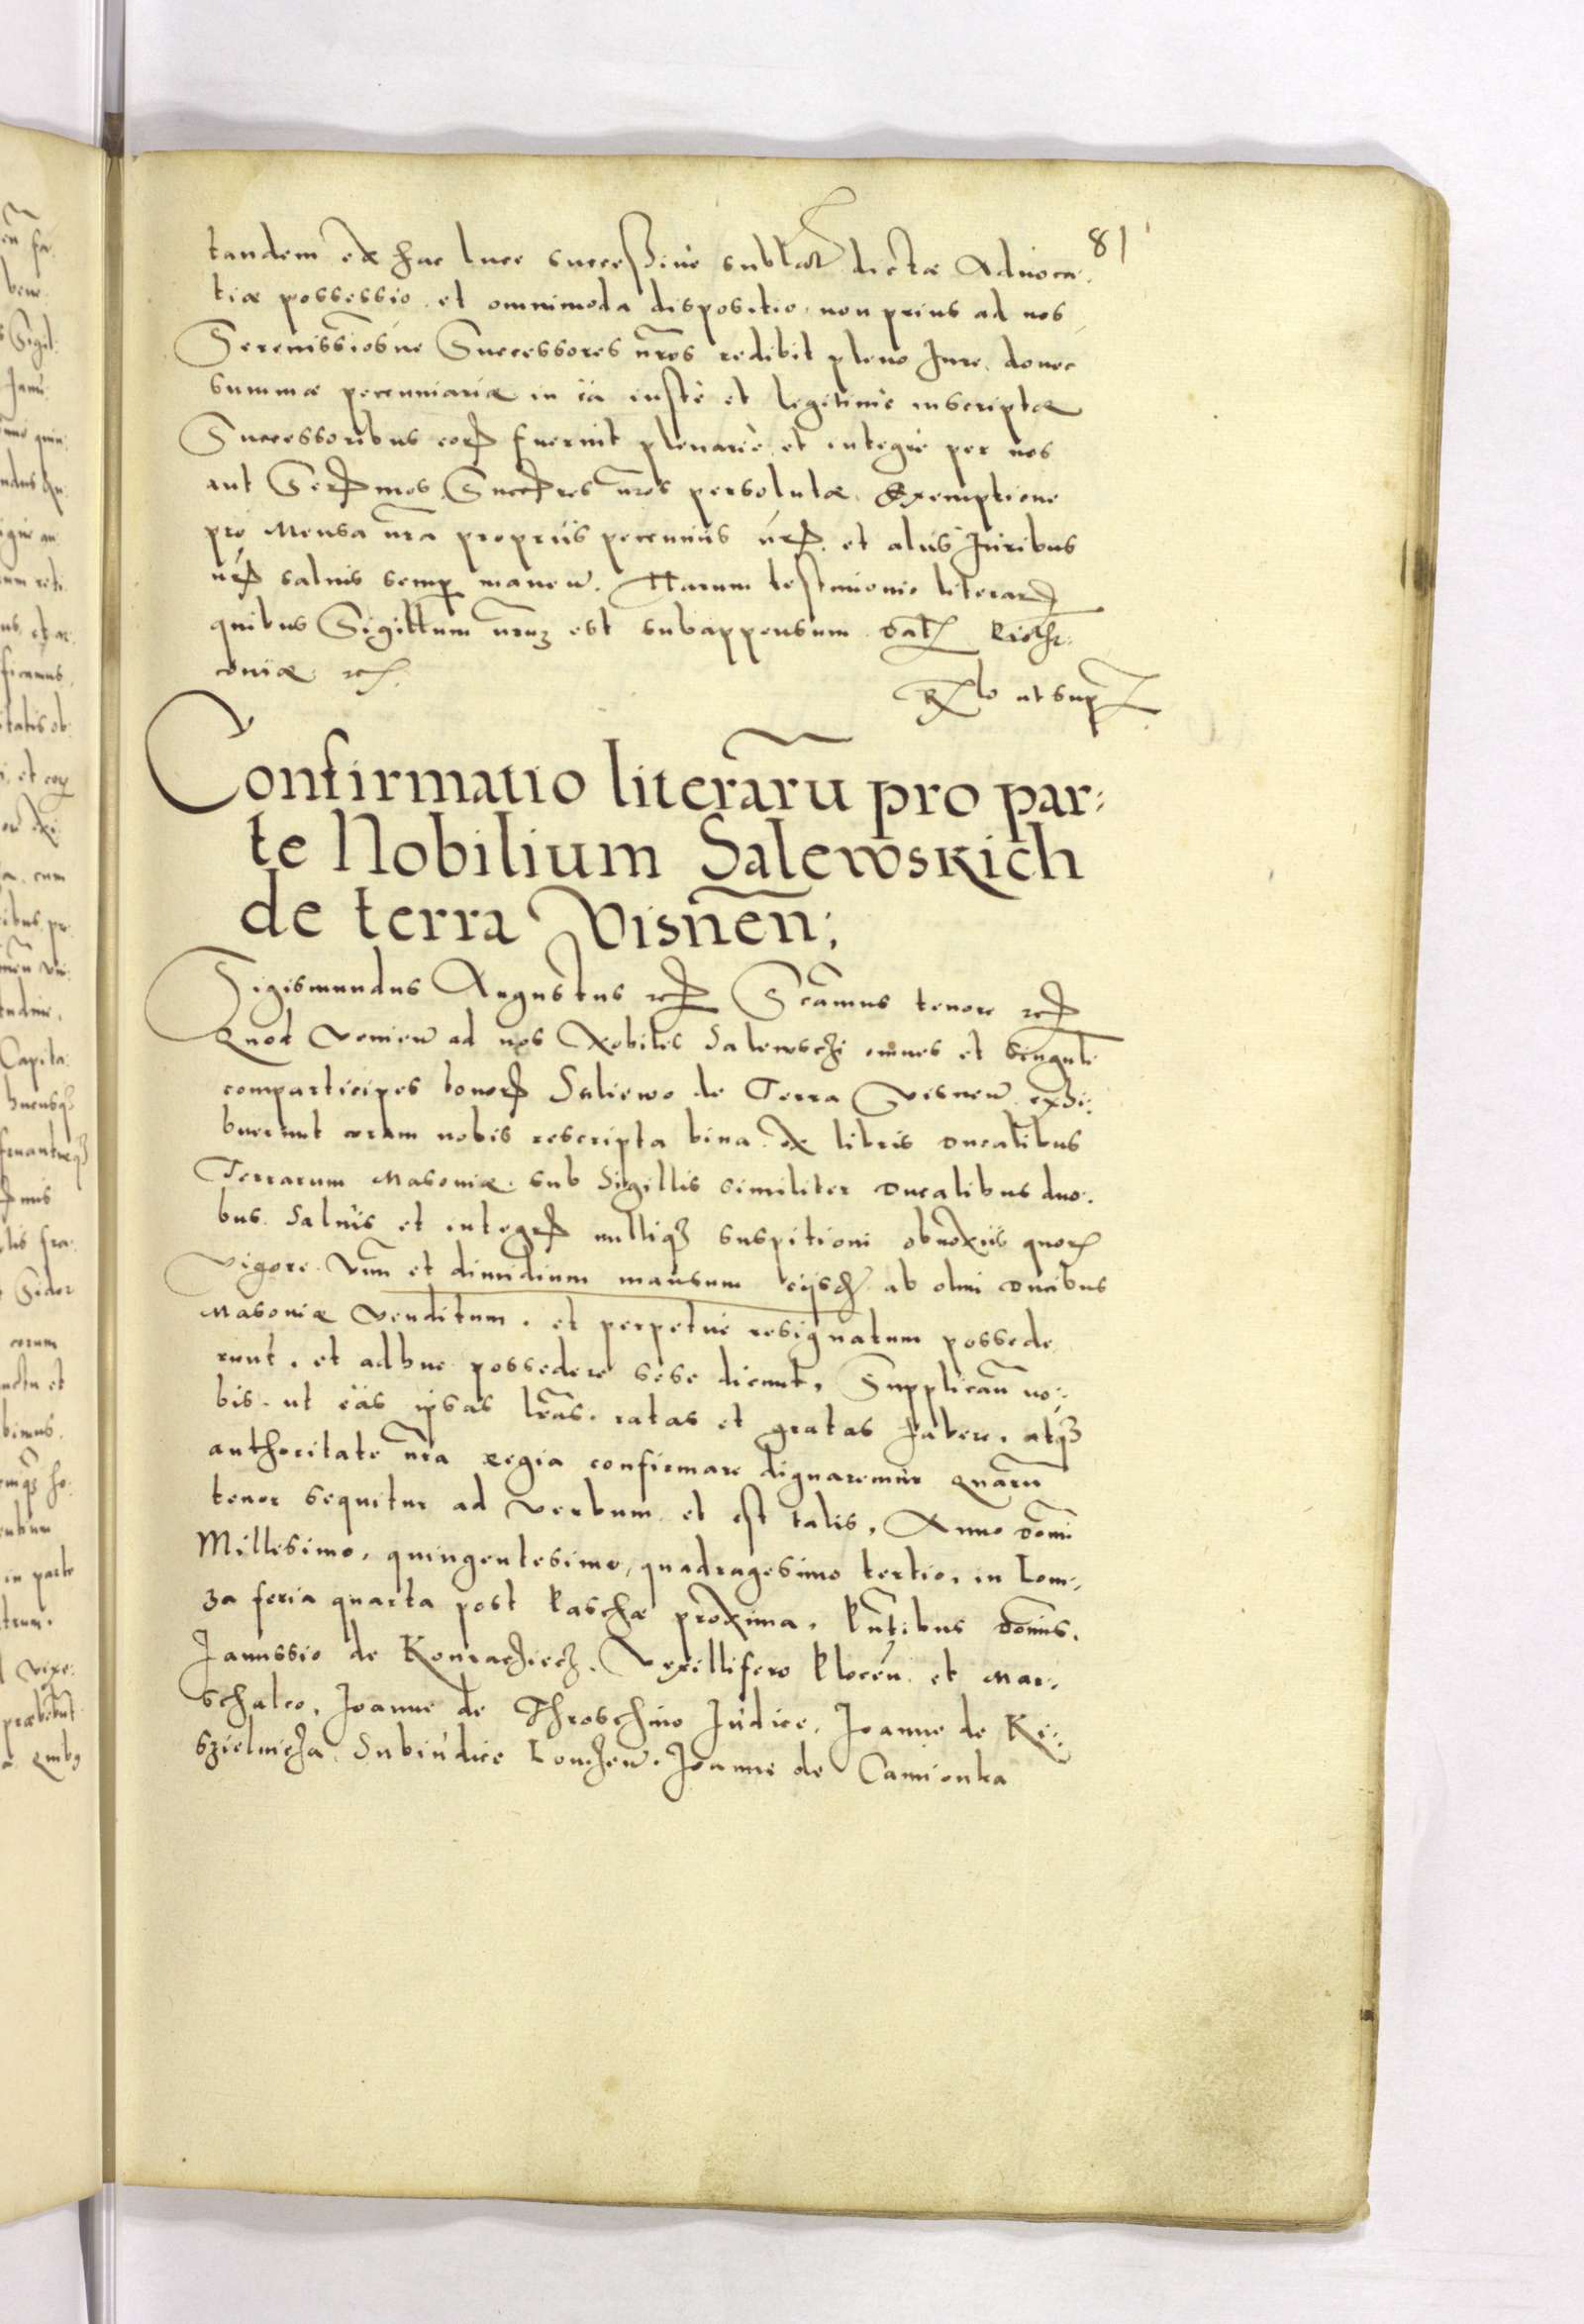 81
tandem ex hac luce successivè sublat dictæ Advoca-
tiæ possessio et omnimoda dispositio, non prius ad nos
Serenissiosve Successores nros redibit pleno Jure, donec
summæ pecuniariæ in ea iustè et legitimè inscriptæ
Successoribus eor fuerint plenariè et integrè per nos
aut Sermos Succres nros persolutæ. Exemptione
pro Mensa nra propriis pecuniis nr. et aliis Juribus
nr salvis semp maneñ. Harum testimonio literar
quibus Sigillum nrum est subappensum. Dat
oniæ etc.
Rlo ut supra
Confirmatio literarū pro par:
te Nobilium Salewskich
de terra Visnen̄;
Sigismundus Augustus etc Scamus tenore etc
Quod venien ad nos Nobiles Salewschi omnes et singuli
comparticipes bonor Saliewo de Terra Visnen exhi:
buerunt coram nobis rescripta bina ex libris ducalibus
Terrarum Masoviæ sub Sigillis similiter ducalibus duo:
bus. Salvis et integr nulliq suspitioni obnoxiis quor
vigore Unu et dimidium mansum eijsd ab olim ducibus
Masoviæ venditum, et perpetue resignatum possede
runt, et adhuc possedere sese dicunt, Supplicaru no:
bis ut eas ipsas lras. ratas et gratas habere, atq
authoritate nra regia confirmare dignaremur Quaru
tenor sequitur ad verbum et est talis, Anno Domi
Millesimo, quingentesimo, quadragesimo tertio, in Lom:
za feria quarta post Paschæ proxima, Pntibus Domis.
Janussio de Konarzicz. Vexillifero Plocen et Mar:
schalco, Joanne de Throschino Judice, Joanne de Ki:
szielnicza Subiudice Lomzen. Joanne de Camionka